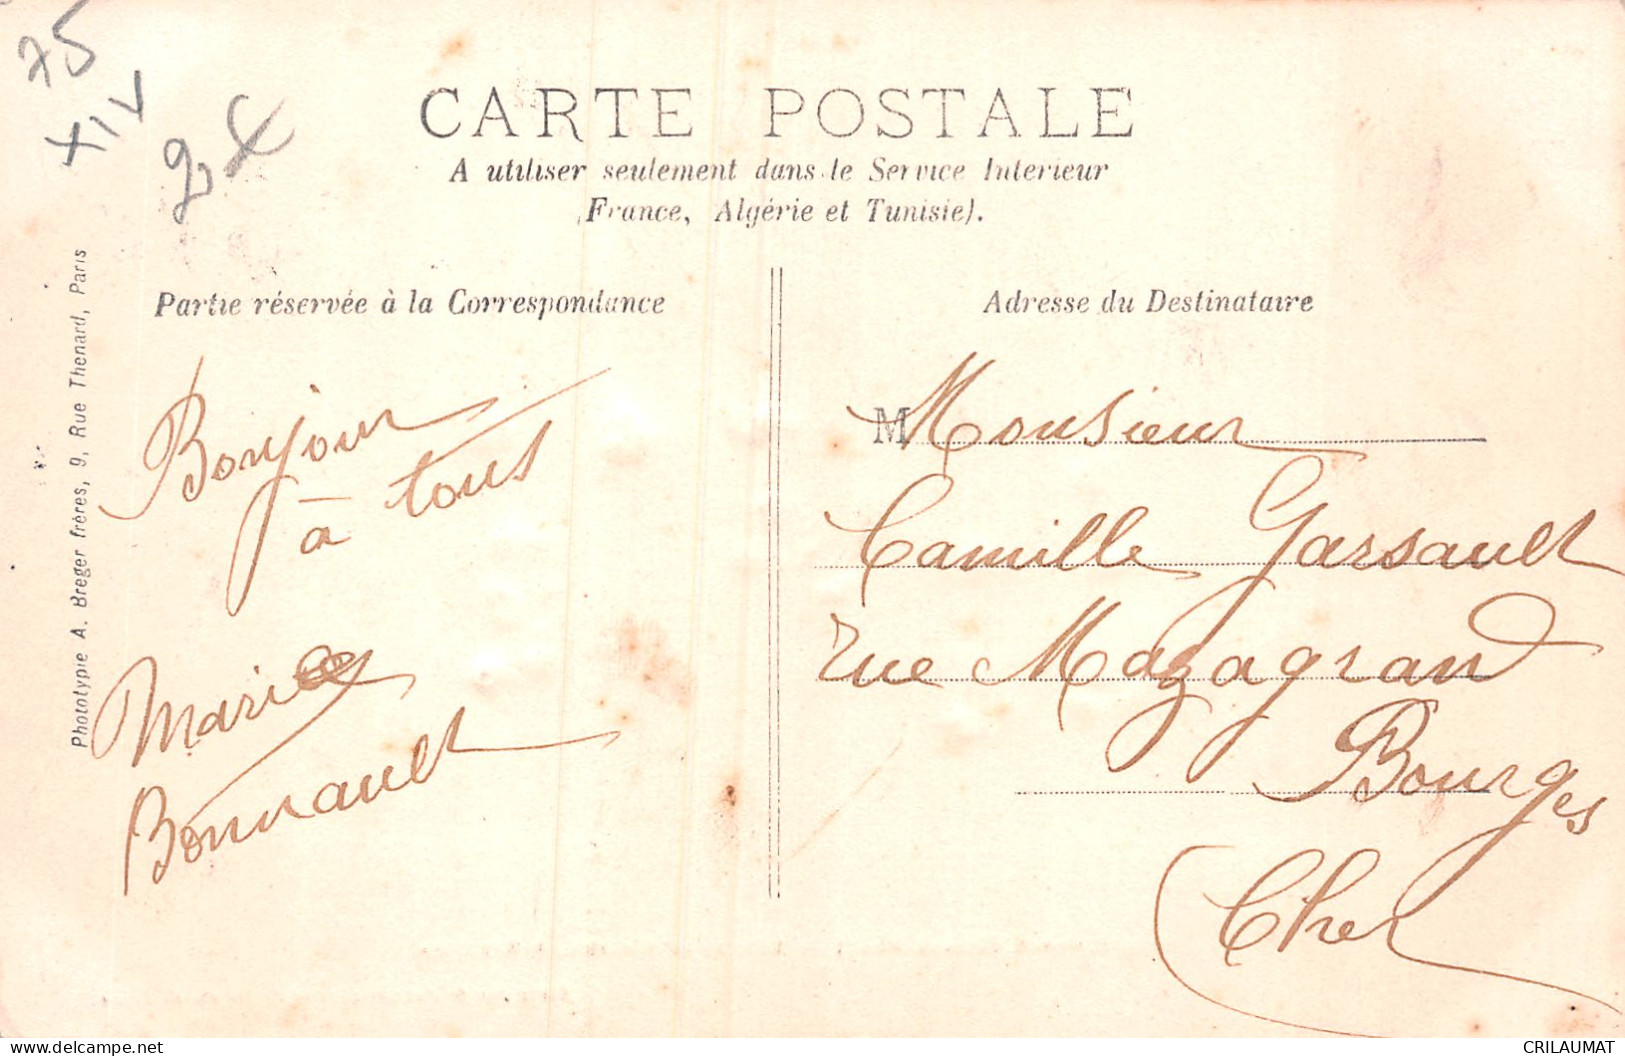 75
XIV
2€
CARTE POSTALE
A utiliser seulement dans le Service Interieur
(France, Algérie et Tunisie).
Phototypie A. Breger frères, 9, Rue Thenard, Paris
Partie réservée à la Correspondance
Bonjour
à tous
Marie
Bonnault
Adresse du Destinataire
M Monsieur
Camille Garsault
rue Mazagran
Bourges
Cher
delcampe.net
CRILAUMAT